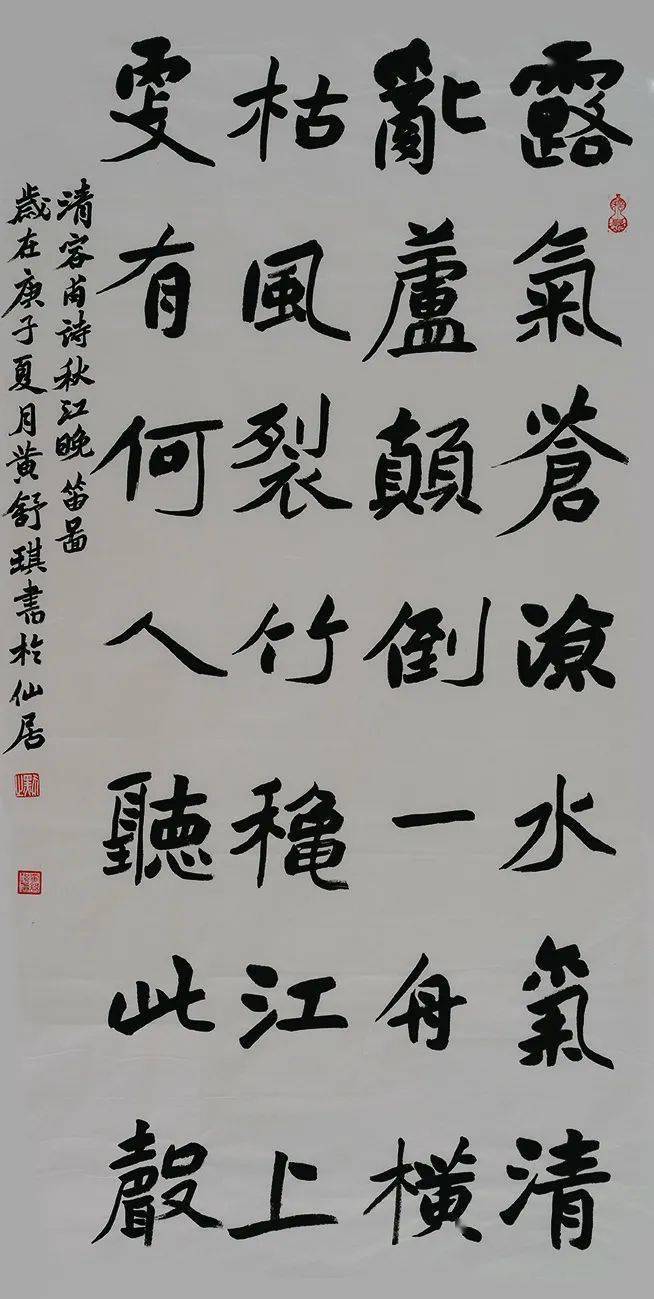 露氣蒼涼水氣清
亂蘆顛倒一舟橫
枯風裂竹穐江上
更有何人聽此聲
清容甫詩秋江晚笛啚
歲在庚子夏月黄舒琪書於仙居